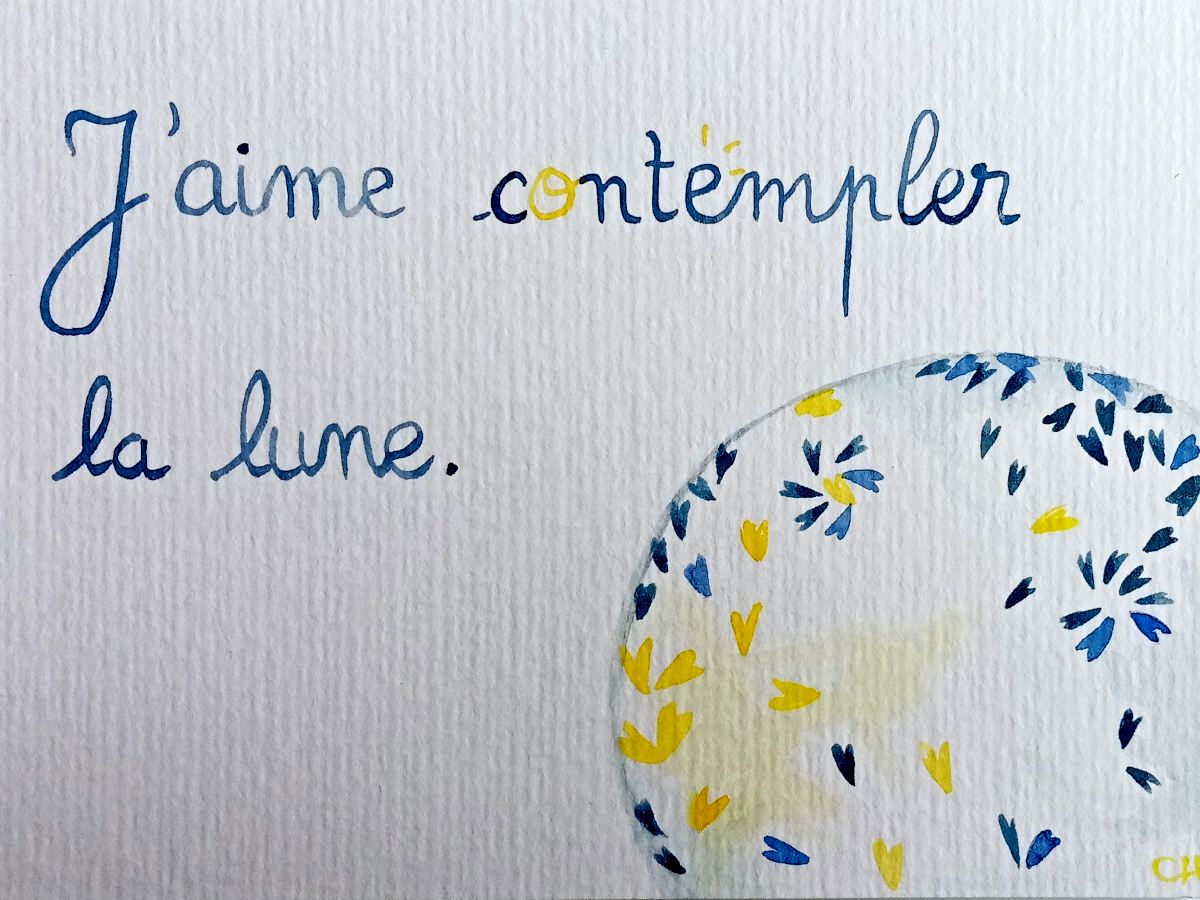 J'aime contempler
la lune.
CH